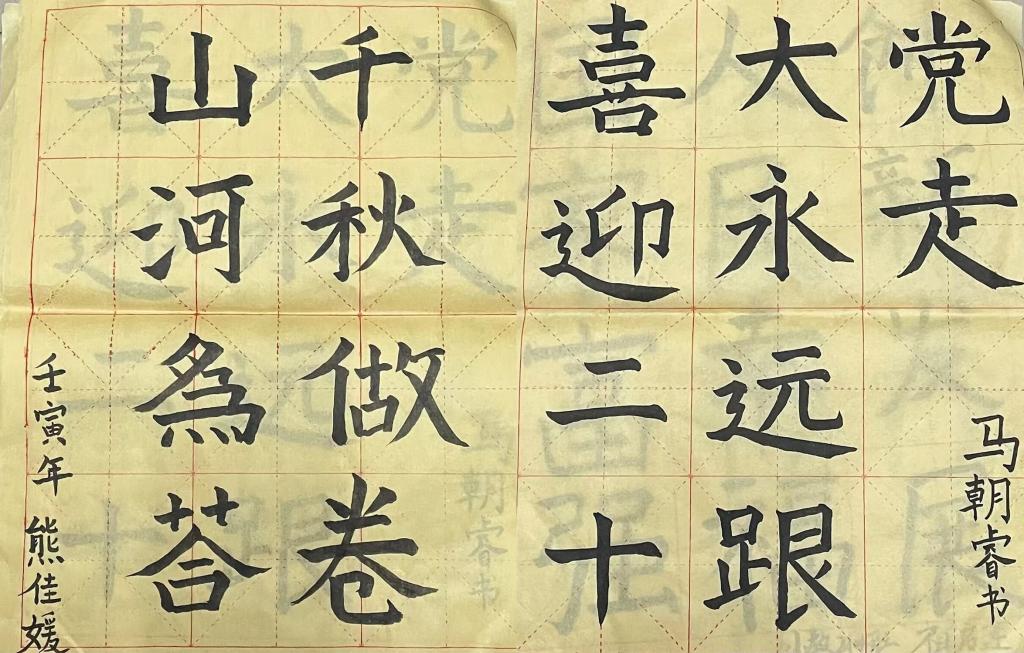 千秋做卷
山河為荅
壬寅年 熊佳媛
喜迎二十
大永远跟
党走
马朝睿书